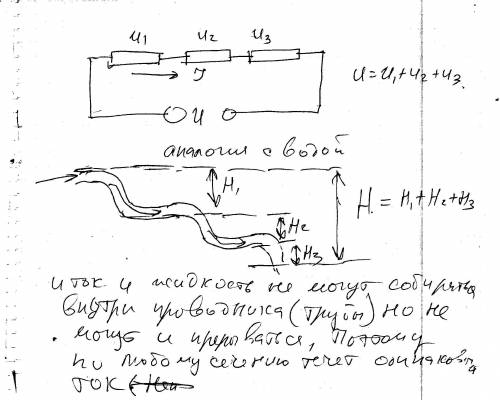 u₁ u₂ u₃
J
u = u₁+u₂+u₃
U
аналогия с водой
H₁
H₂
H₃
H = H₁+H₂+H₃
и ток и жидкость не могут собираться
внутри проводника (трубы) но не
могут и прерываться, поэтому
по любому сечению течет одинаковый
ток